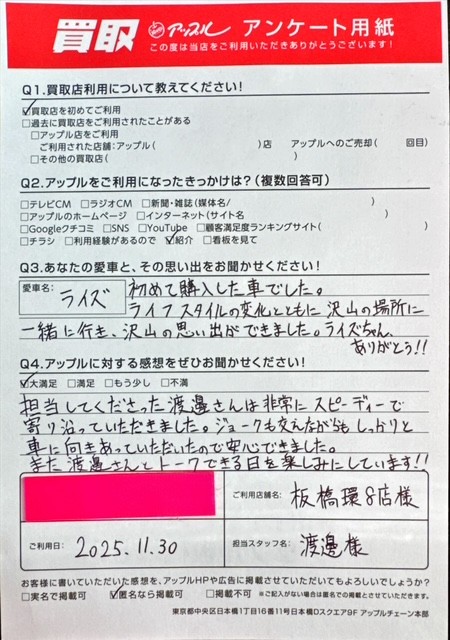 買取 アップル アンケート用紙
この度は当店をご利用いただきありがとうございます!
Q1.買取店利用について教えてください!
☑買取店を初めてご利用
□過去に買取店をご利用されたことがある
□アップル店をご利用
ご利用された店舗:アップル( )店 アップルへのご売却( 回目)
□その他の買取店( )
Q2.アップルをご利用になったきっかけは?(複数回答可)
□テレビCM □ラジオCM □新聞・雑誌(媒体名/ )
□アップルのホームページ □インターネット(サイト名 )
□Googleクチコミ □SNS □YouTube □顧客満足度ランキングサイト( )
□チラシ □利用経験があるので ☑紹介 □看板を見て
Q3.あなたの愛車と、その思い出をお聞かせください!
愛車名: ライズ 初めて購入した車でした。
ライフスタイルの変化とともに沢山の場所に
一緒に行き、沢山の思い出ができました。ライズちゃん、
ありがとう!!
Q4.アップルに対する感想をぜひお聞かせください!
☑大満足 □満足 □もう少し □不満
担当してくださった渡邉さんは非常にスピーディーで
寄り沿っていただきました。ジョークも交えながらもしっかりと
車に向きあっていただいたので安心できました。
また渡邉さんとトークできる日を楽しみにしています!!
ご利用店舗名: 板橋環8店様
ご利用日: 2025.11.30 担当スタッフ名: 渡邉様
お客様に書いていただいた感想を、アップルHPや広告に掲載させていただいてもよろしいでしょうか?
□実名で掲載可 ☑匿名なら掲載可 □掲載不可 ※ご記入がない場合は匿名での掲載とさせていただきます。
東京都中央区日本橋1丁目16番11号日本橋Dスクエア9F アップルチェーン本部